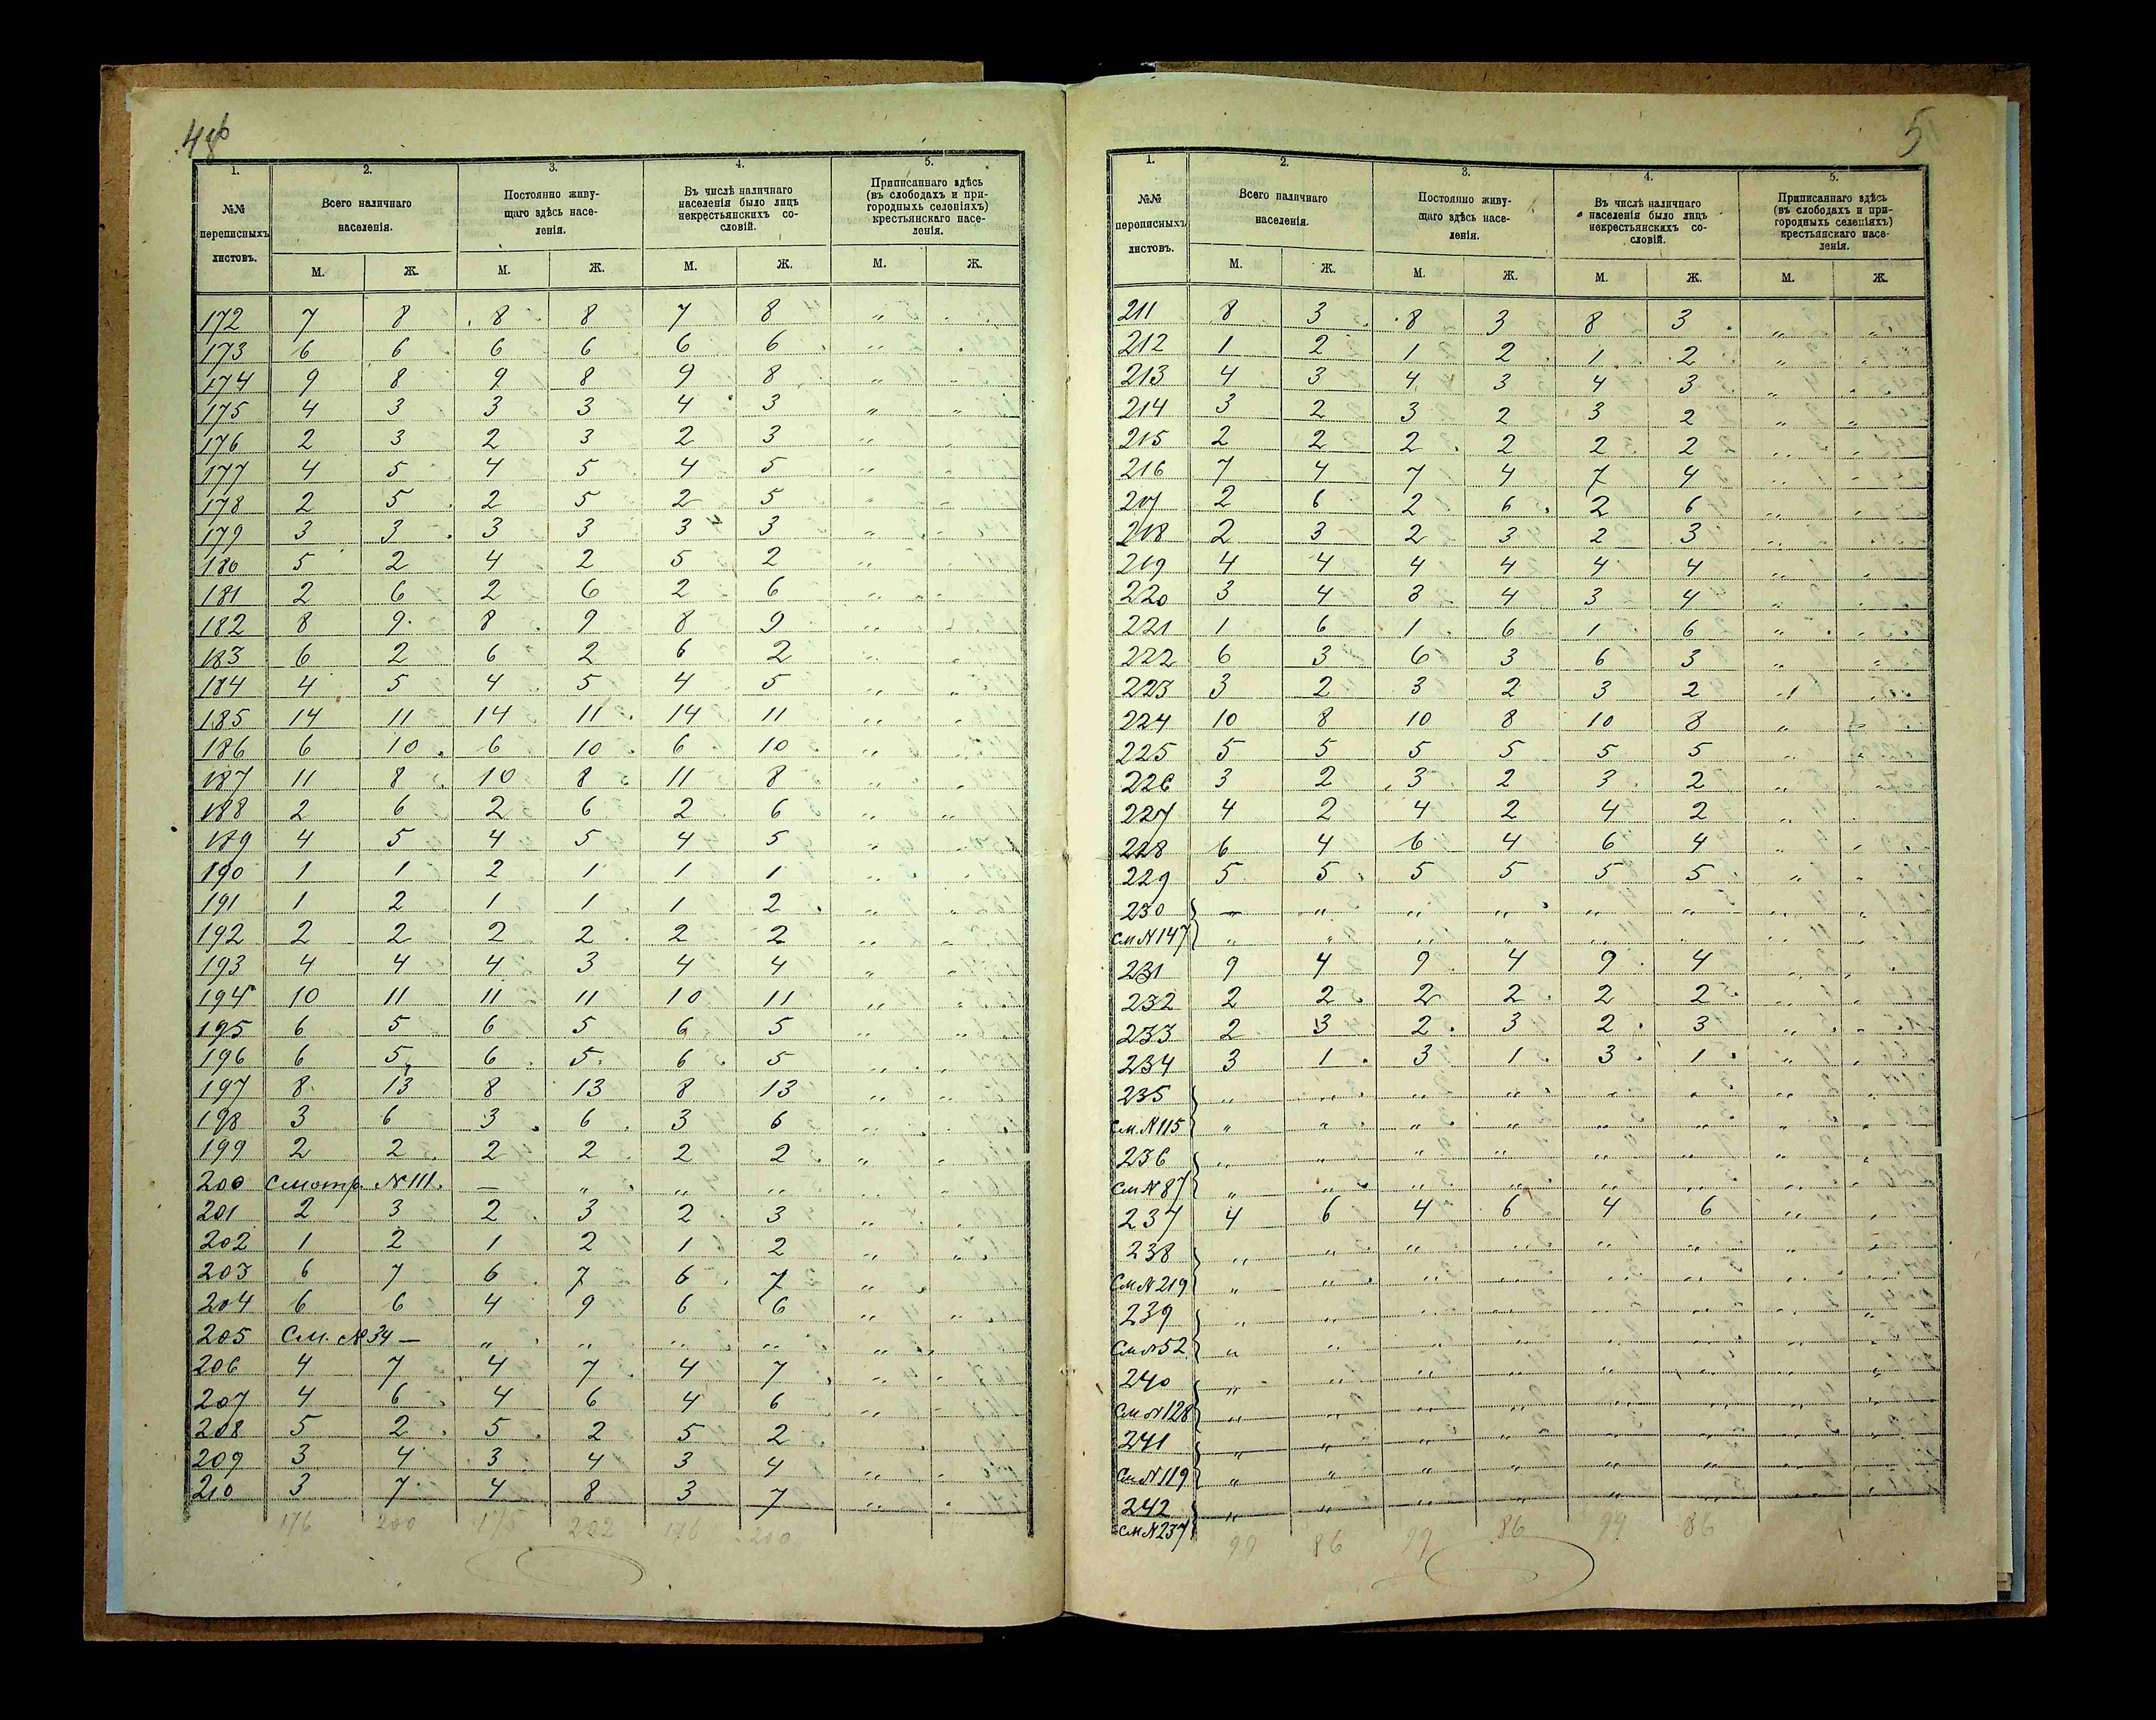 4об
1. 2. 3. 4. 5.
№№ переписныхъ листовъ. Всего наличнаго населенія. Постоянно живущаго здѣсь населенія. Въ числѣ наличнаго населенія было лицъ некрестьянскихъ сословій. Приписаннаго здѣсь (въ слободахъ и пригородныхъ селеніяхъ) крестьянскаго населенія.
М. Ж. М. Ж. М. Ж. М. Ж.
172 7 8 8 8 7 8 „ „
173 6 6 6 6 6 6 „ „
174 9 8 9 8 9 8 „ „
175 4 3 3 3 4 3 „ „
176 2 3 2 3 2 3 „ „
177 4 5 4 5 4 5 „ „
178 2 5 2 5 2 5 „ „
179 3 3 3 3 3 3 „ „
180 5 2 4 2 5 2 „ „
181 2 6 2 6 2 6 „ „
182 8 9 8 9 8 9 „ „
183 6 2 6 2 6 2 „ „
184 4 5 4 5 4 5 „ „
185 14 11 14 11 14 11 „ „
186 6 10 6 10 6 10 „ „
187 11 8 10 8 11 8 „ „
188 2 6 2 6 2 6 „ „
189 4 5 4 5 4 5 „ „
190 1 1 2 1 1 1 „ „
191 1 2 1 1 1 2 „ „
192 2 2 2 2 2 2 „ „
193 4 4 4 3 4 4 „ „
194 10 11 11 11 10 11 „ „
195 6 5 6 5 6 5 „ „
196 6 5 6 5 6 5 „ „
197 8 13 8 13 8 13 „ „
198 3 6 3 6 3 6 „ „
199 2 2 2 2 2 2 „ „
200 Смотр. №111. — „ „ „ „ „
201 2 3 2 3 2 3 „ „
202 1 2 1 2 1 2 „ „
203 6 7 6 7 6 7 „ „
204 6 6 4 9 6 6 „ „
205 См. №34 — „ „ „ „ „ „
206 4 7 4 7 4 7 „ „
207 4 6 4 6 4 6 „ „
208 5 2 5 2 5 2
209 3 4 3 4 3 4 „ „
210 3 7 4 8 3 7 „ „
176 200 175 202 176 200
5
1. 2. 3. 4. 5.
№№ переписныхъ листовъ. Всего наличнаго населенія. Постоянно живущаго здѣсь населенія. Въ числѣ наличнаго населенія было лицъ некрестьянскихъ сословій. Приписаннаго здѣсь (въ слободахъ и пригородныхъ селеніяхъ) крестьянскаго населенія.
М. Ж. М. Ж. М. Ж. М. Ж.
211 8 3 8 3 8 3 „ „
212 1 2 1 2 1 2 „ „
213 4 3 4 3 4 3 „ „
214 3 2 3 2 3 2 „ „
215 2 2 2 2 2 2 „ „
216 7 4 7 4 7 4 „ „
217 2 6 2 6 2 6 „ „
218 2 3 2 3 2 3 „ „
219 4 4 4 4 4 4 „ „
220 3 4 3 4 3 4 „ „
221 1 6 1 6 1 6 „ „
222 6 3 6 3 6 3 „ „
223 3 2 3 2 3 2 „ „
224 10 8 10 8 10 8 „ „
225 5 5 5 5 5 5 „ „
226 3 2 3 2 3 2 „ „
227 4 2 4 2 4 2 „ „
228 6 4 6 4 6 4 „ „
229 5 5 5 5 5 5 „ „
230 — „ „ „ „ „ „ „
см №147 „ „ „ „ „ „ „ „
231 9 4 9 4 9 4 „ „
232 2 2 2 2 2 2 „ „
233 2 3 2 3 2 3 „ „
234 3 1 3 1 3 1 „ „
235 „ „ „ „ „ „ „ „
см. №115 „ „ „ „ „ „ „ „
236 „ „ „ „ „ „ „ „
см №87 „ „ „ „ „ „ „ „
237 4 6 4 6 4 6 „ „
238 „ „ „ „ „ „ „ „
см №219 „ „ „ „ „ „ „ „
239 „ „ „ „ „ „ „ „
см №52 „ „ „ „ „ „ „ „
240 „ „ „ „ „ „ „ „
см №128 „ „ „ „ „ „ „ „
241 „ „ „ „ „ „ „ „
см №119 „ „ „ „ „ „ „ „
242 „ „ „ „ „ „ „ „
см №237
99 86 99 86 99 86